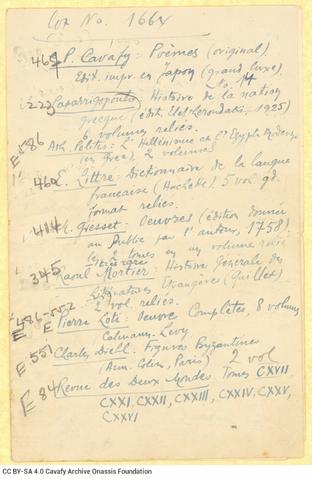 Lot No. 1664
465 P. Cavafy: Poèmes (original)
Edit. impr. en Japon (grand luxe).
No. 14
223 Caparrigopoulo: Histoire de la nation
grecque (édit. Elefteroudakis, 1925)
6 volumes reliés.
E 586 Ath. Politis: L'Hellénisme et l'Egypte Moderne
(en grec), 2 volumes
462 E. Littre: Dictionnaire de la langue
française (Hachette), 5 vol. gd.
format reliés.
414 Gresset: Oeuvres (édition donnée
au Public par l'auteur, 1758).
les 2 tomes en un volume relié
345 Raoul Mortier: Histoire Générale des
Littératures Etrangères (Quillet)
2 vol. reliés.
E Pierre Loti: Oeuvre Complètes, 8 volums
Calmann-Levy
E 551 Charles Diehl. Figures Byzantines
(Arm. Colin, Paris) 2 vol
E 84 Revue des Deux Mondes. Tomes CXVII
CXXI, CXXII, CXXIII, CXXIV, CXXV,
CXXVI
CC BY-SA 4.0 Cavafy Archive Onassis Foundation